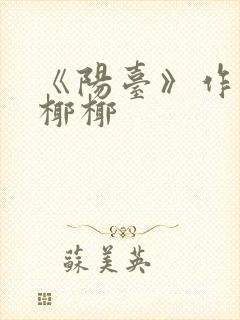 《陽臺》作
椰椰
蘇美英